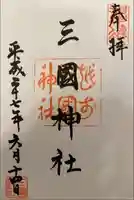 奉拝
三國神社
越前
三国
神社
平成二十七年六月十四日